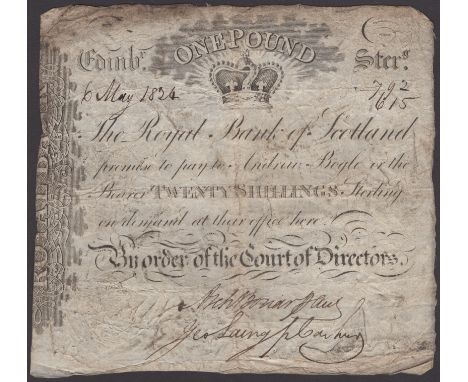 ONE POUND
Edinbr. Sterg.
6 May 1824 792
The Royal Bank of Scotland
promise to pay to Andrew Bogle or the
Bearer TWENTY SHILLINGS Sterling
on demand at their office here.
By order of the Court of Directors.